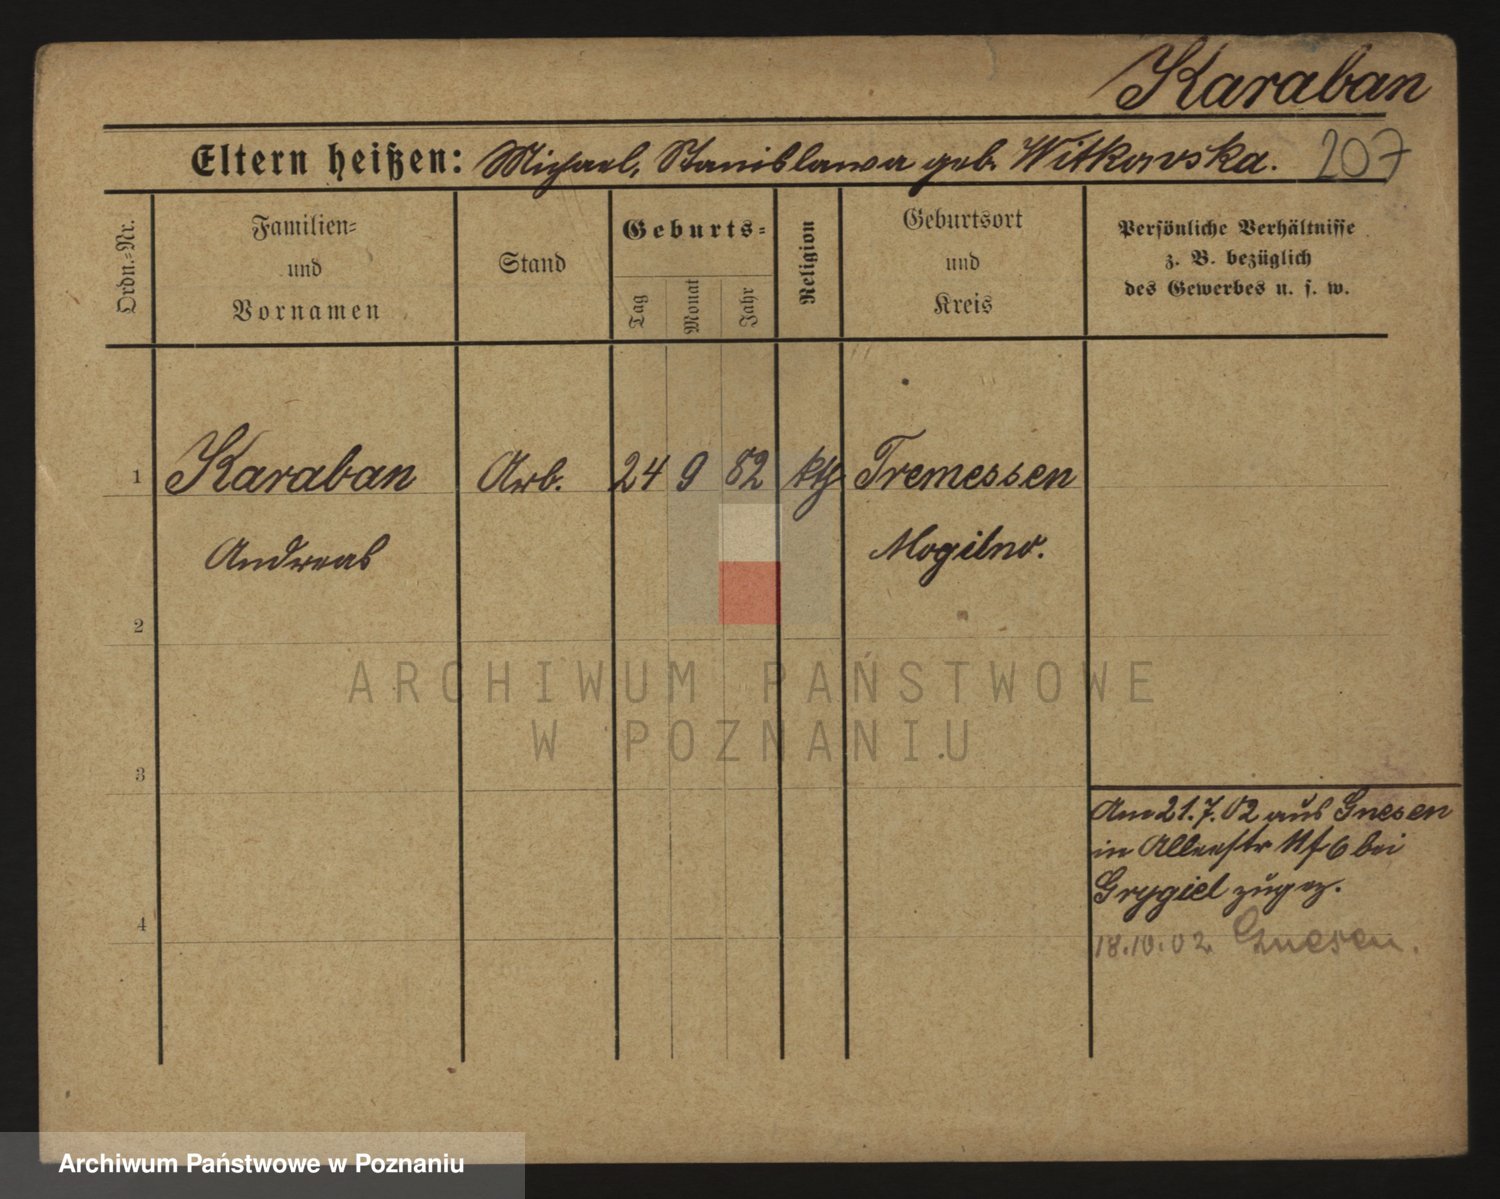 Karaban
Eltern heißen: Michael, Stanislawa geb. Witkowska. 207
Ordn.-Nr.
Familien-
und
Vornamen
Stand
Geburts-
Tag
Monat
Jahr
Religion
Geburtsort
und
Kreis
Persönliche Verhältnisse
z. B. bezüglich
des Gewerbes u. s. w.
1 Karaban Arb. 24 9 82 kth Tremessen
Andreas Mogilno.
2
3
4
Am 21.7.02 aus Gnesen
in Alleestr No 6 bei
Grygiel zugez.
18.10.02 Gnesen.
ARCHIWUM PAŃSTWOWE
W POZNANIU
Archiwum Państwowe w Poznaniu